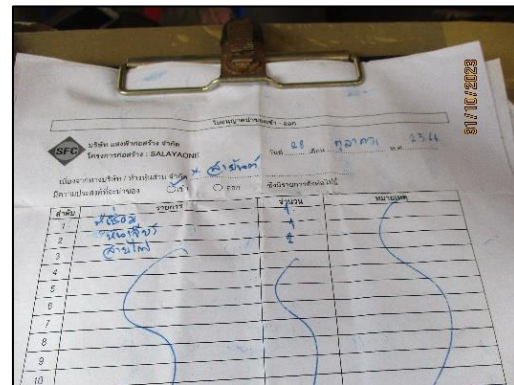 31/10/2023
ใบอนุญาตนำของเข้า - ออก
SFC
บริษัท แสงฟ้าก่อสร้าง จำกัด
โครงการก่อสร้าง : SALAYAONE
วันที่ 28 เดือน ตุลาคม พ.ศ. 2566
เนื่องจากทางบริษัท / ห้างหุ้นส่วน จำกัด
มีความประสงค์ที่จะนำของ เข้า ออก ซึ่งมีรายการดังต่อไปนี้
ลำดับ รายการ จำนวน หมายเหตุ
1 1
2 1
3 สายไฟ 2
4
5
6
7
8
9
10